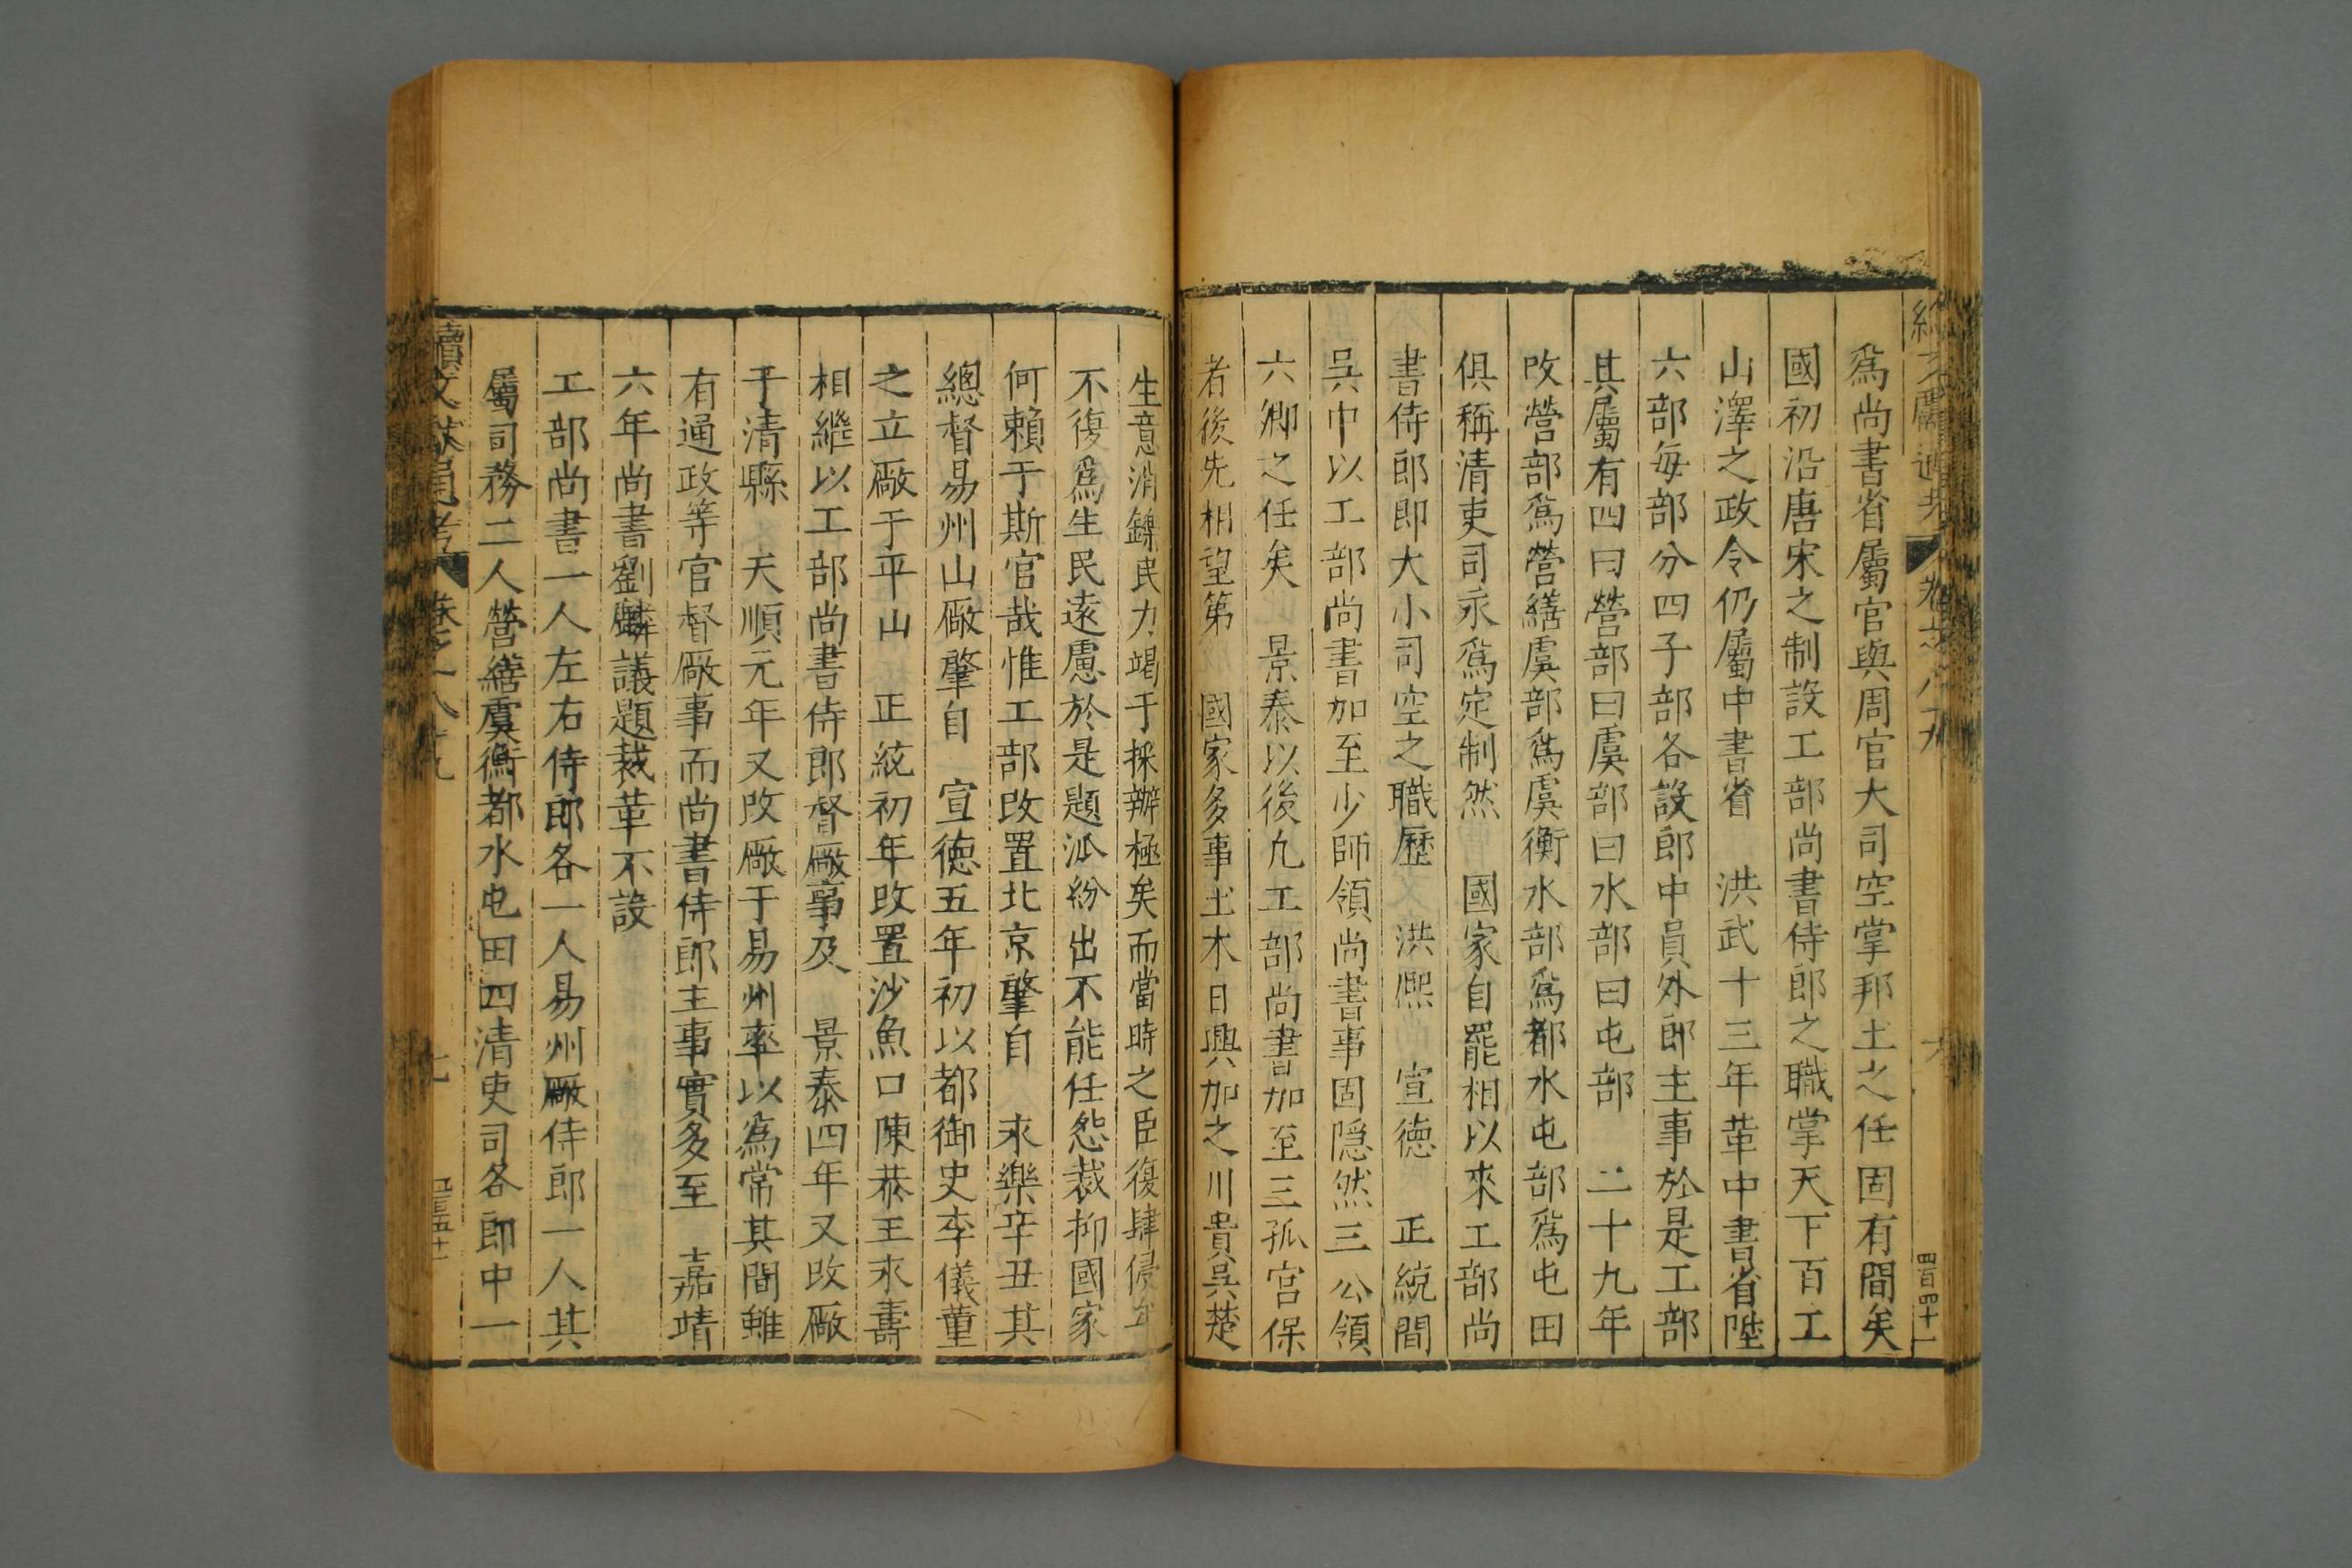 爲尚書省屬官與周官大司空掌邦土之任固有間矣
國初沿唐宋之制設工部尚書侍郎之職掌天下百工
山澤之政令仍屬中書省 洪武十三年革中書省陞
六部每部分四子部各設郎中員外郎主事於是工部
其屬有四曰營部曰虞部曰水部曰屯部 二十九年
改營部爲營繕虞部爲虞衡水部爲都水屯部爲屯田
俱稱清吏司永爲定制然 國家自罷相以來工部尚
書侍郎即大小司空之職歷 洪熙 宣德 正統間
吳中以工部尚書加至少師領尚書事固隱然三公領
六卿之任矣 景泰以後九工部尚書加至三孤宮保
者後先相望第 國家多事土木日興加之川貴吳楚
生意消鑠民力竭于採辦極矣而當時之臣復肆侵牟
不復爲生民遠慮於是題派紛出不能任怨裁抑國家
何賴于斯官哉惟工部改置北京肇自 永樂辛丑其
總督易州山厰肇自 宣德五年初以都御史李儀董
之立厰于平山 正統初年改置沙魚口陳恭王永壽
相繼以工部尚書侍郎督厰事及 景泰四年又改厰
于清縣 天順元年又改厰于易州率以爲常其間雖
有通政等官督厰事而尚書侍郎主事實多至 嘉靖
六年尚書劉麟議題裁革不設
工部尚書一人左右侍郎各一人易州厰侍郎一人其
屬司務二人營繕虞衡都水屯田四清吏司各郎中一
續文獻通考 卷之八十九 七